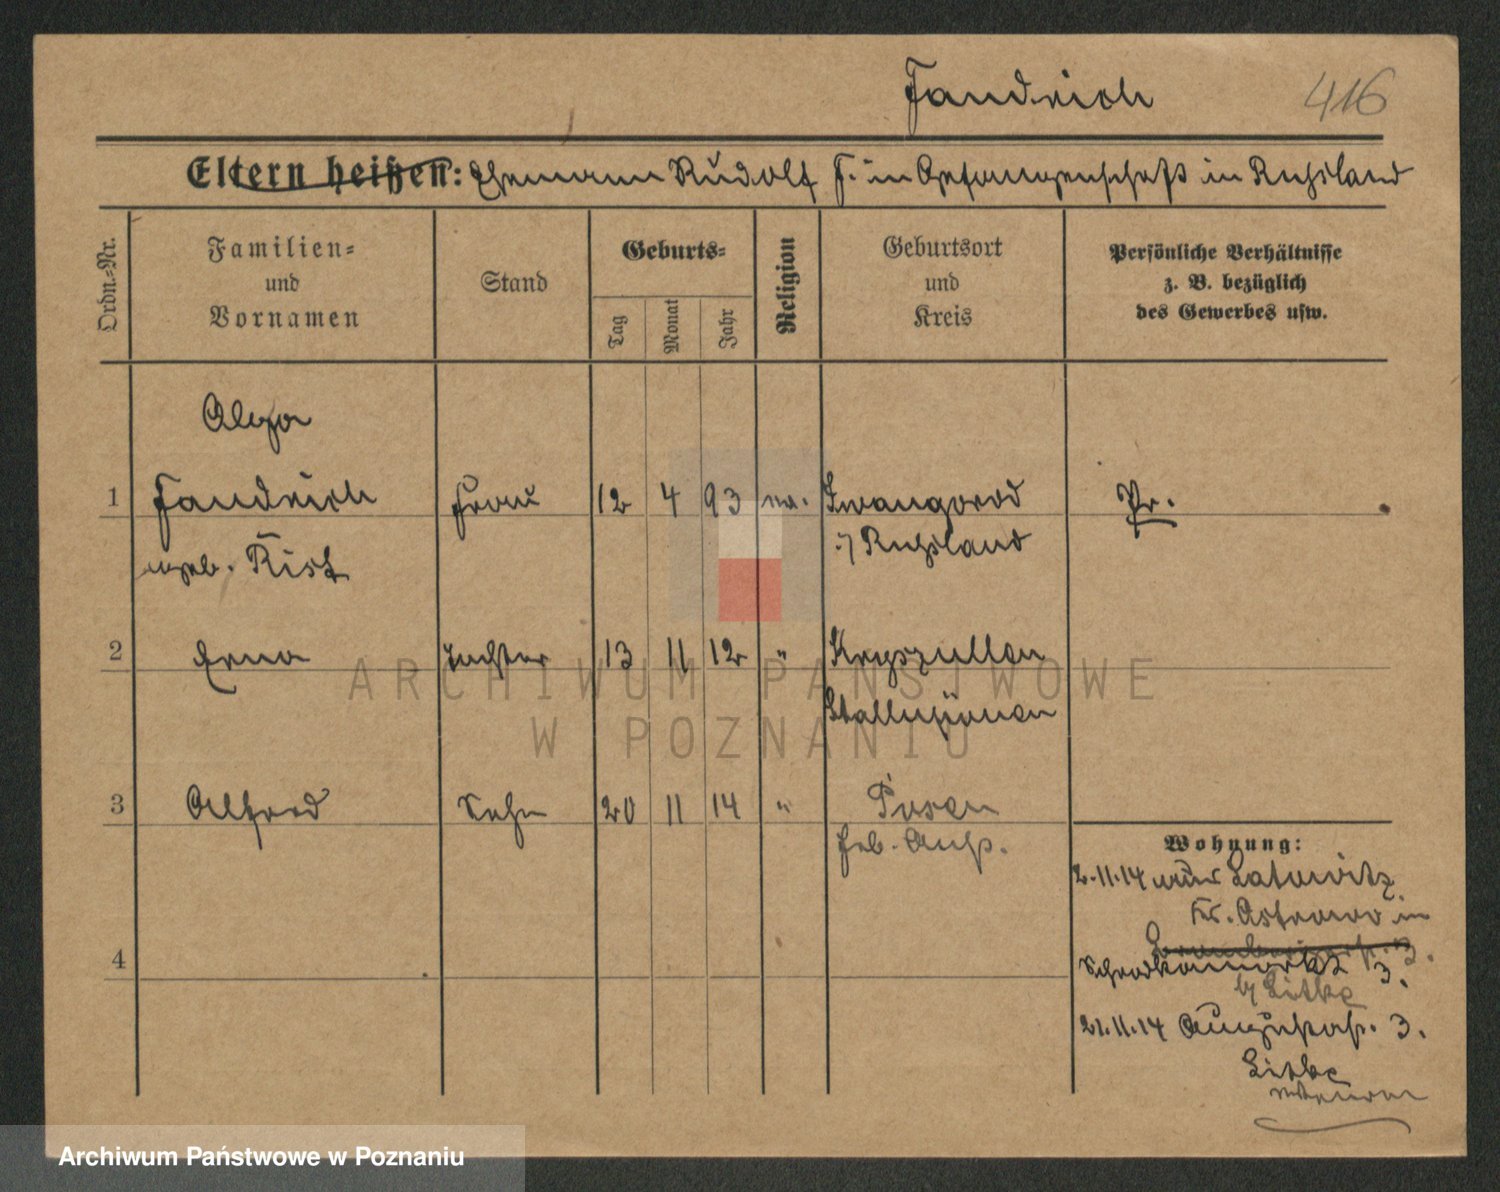 Fandrich
416
Eltern heißen: Ehemann Rudolf F. in Gefangenschaft in Russland
Ordn.-Nr.
Familien-
und
Vornamen
Stand
Geburts-
Tag
Monat
Jahr
Religion
Geburtsort
und
Kreis
Persönliche Verhältnisse
z. B. bezüglich
des Gewerbes usw.
Olga
1 Fandrich Frau 12 4 93 ev. Iwangorod Pr.
geb. Rist i/ Russland
2 Erna Tochter 13 11 12 "
Stallupönen
3 Alfred Sohn 20 11 14 " Posen
Geb. Ausz.
Wohnung:
2.11.14 aus Latowitz
Kr. Ostrowo in
3.
3.
b/ Litke
4
21.11.14 Augustastr. 3.
Litke
ARCHIWUM PAŃSTWOWE
W POZNANIU
Archiwum Państwowe w Poznaniu